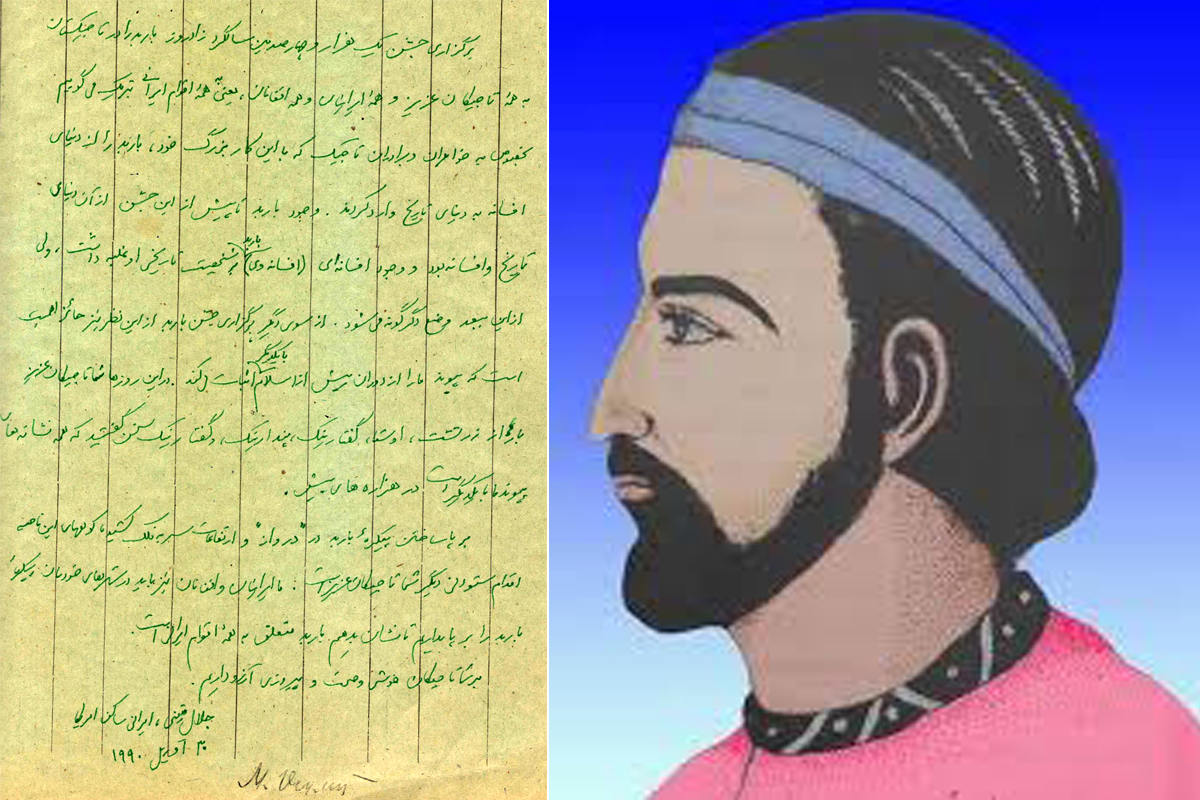 برگزاری جشن یک هزار و چهارصدمین سالگرد زادروز باربد را در تاجیکستان
به همهٔ تاجیکان عزیز و همهٔ ایرانیان و همه افغانان، یعنی به همهٔ اقوام ایرانی تبریک می‌گویم
بخصوص به خواهران و برادران تاجیک که با این کار بزرگ خود، باربد را از دنیای
افسانه به دنیای تاریخ وارد کردند. وجود باربد تا پیش از این جشن از آن دنیای
تاریخ و افسانه بود و وجود افسانه‌ای (افسانه‌وی) باربد بر شخصیت تاریخی او غلبه داشت، ولی
ازاین ببعد وضع دگرگونه می‌شود. از سوی دیگر برگزاری جشن باربد از این نظر نیز حائز اهمیت
است که پیوند ما را از دوران پیش از اسلام با یکدیگر اثبات می‌کند. در این روزها شما تاجیکان عزیز
با ما از زردشت، اوستا، گفتار نیک، پندار نیک، و گفتار نیک سخن گفتید که همه نشانه‌های
پیوند ما با یکدیگر است در هزاره های پیش.
بر پا ساختن پیکرهٔ باربد در "درواز" و ارتفاعات سر به فلک کشیده کوههای این ناحیه
اقدام ستودنی دیگر شما تاجیکان عزیز است. ما ایرانیان و افغانان نیز باید در شهرهای خودمان پیکرهٔ
باربد را بر پا بداریم تا نشان بدهیم باربد متعلق به همهٔ اقوام ایرانی است.
برشما تاجیکان خوشی و صحت و پیروزی آرزو داریم.
جلال متینی، ایرانی ساکن امریکا
۳۰ آوریل ۱۹۹۰